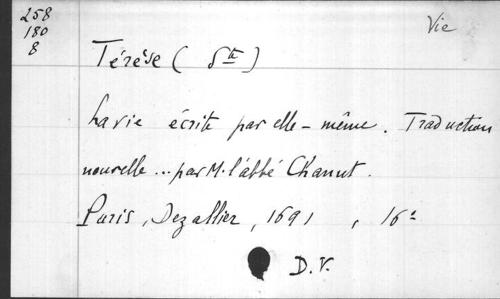 258
180
8
Vie
Térèse ( Ste )
La vie écrite par elle-même. Traduction
nouvelle... par M. l'abbé Chanut.
Paris, Dezallier, 1691, 16°
D.V.